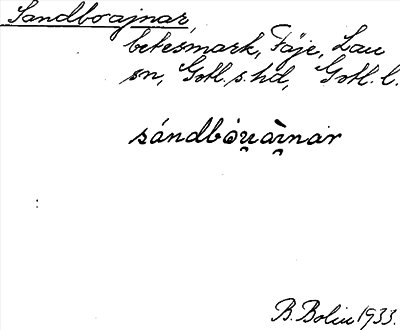 Sandboajnar,
betesmark, Fäje, Lau
sn, Gotl. s. hd, Gotl. l.
sándbòu̯ai̯nar
B. Bolin 1933.